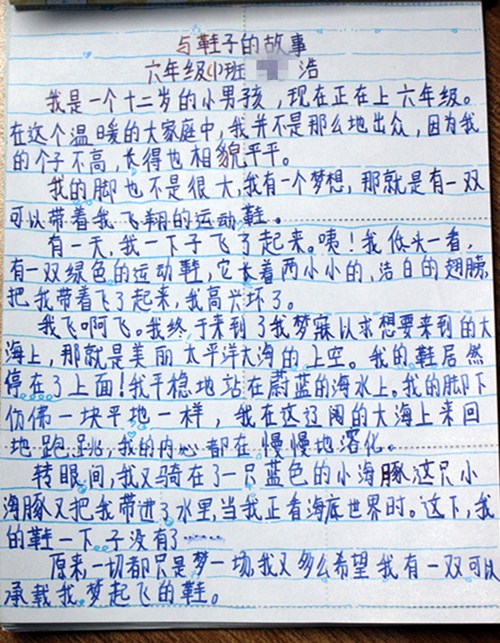 与鞋子的故事
六年级(1)班 浩
我是一个十二岁的小男孩，现在正在上六年级。
在这个温暖的大家庭中，我并不是那么地出众，因为我
的个子不高，长得也相貌平平。
我的脚也不是很大，我有一个梦想，那就是有一双
可以带着我飞翔的运动鞋。
有一天，我一下子飞了起来。咦！我低头一看，
有一双绿色的运动鞋，它长着两小小的、洁白的翅膀，
把我带着飞了起来，我高兴坏了。
我飞啊飞。我终于来到了我梦寐以求想要来到的大
海上，那就是美丽太平洋大海的上空。我的鞋居然
停在了上面！我平稳地站在蔚蓝的海水上。我的脚下
仿佛一块平地一样，我在这辽阔的大海上来回
地跑跳，我的内心都在慢慢地溶化。
转眼间，我又骑在了一只蓝色的小海豚，这只小
海豚又把我带进了水里，当我正看海底世界时。这下，我
的鞋一下子没有了……
原来一切都只是梦一场，我又多么希望我有一双可以
承载我梦起飞的鞋。